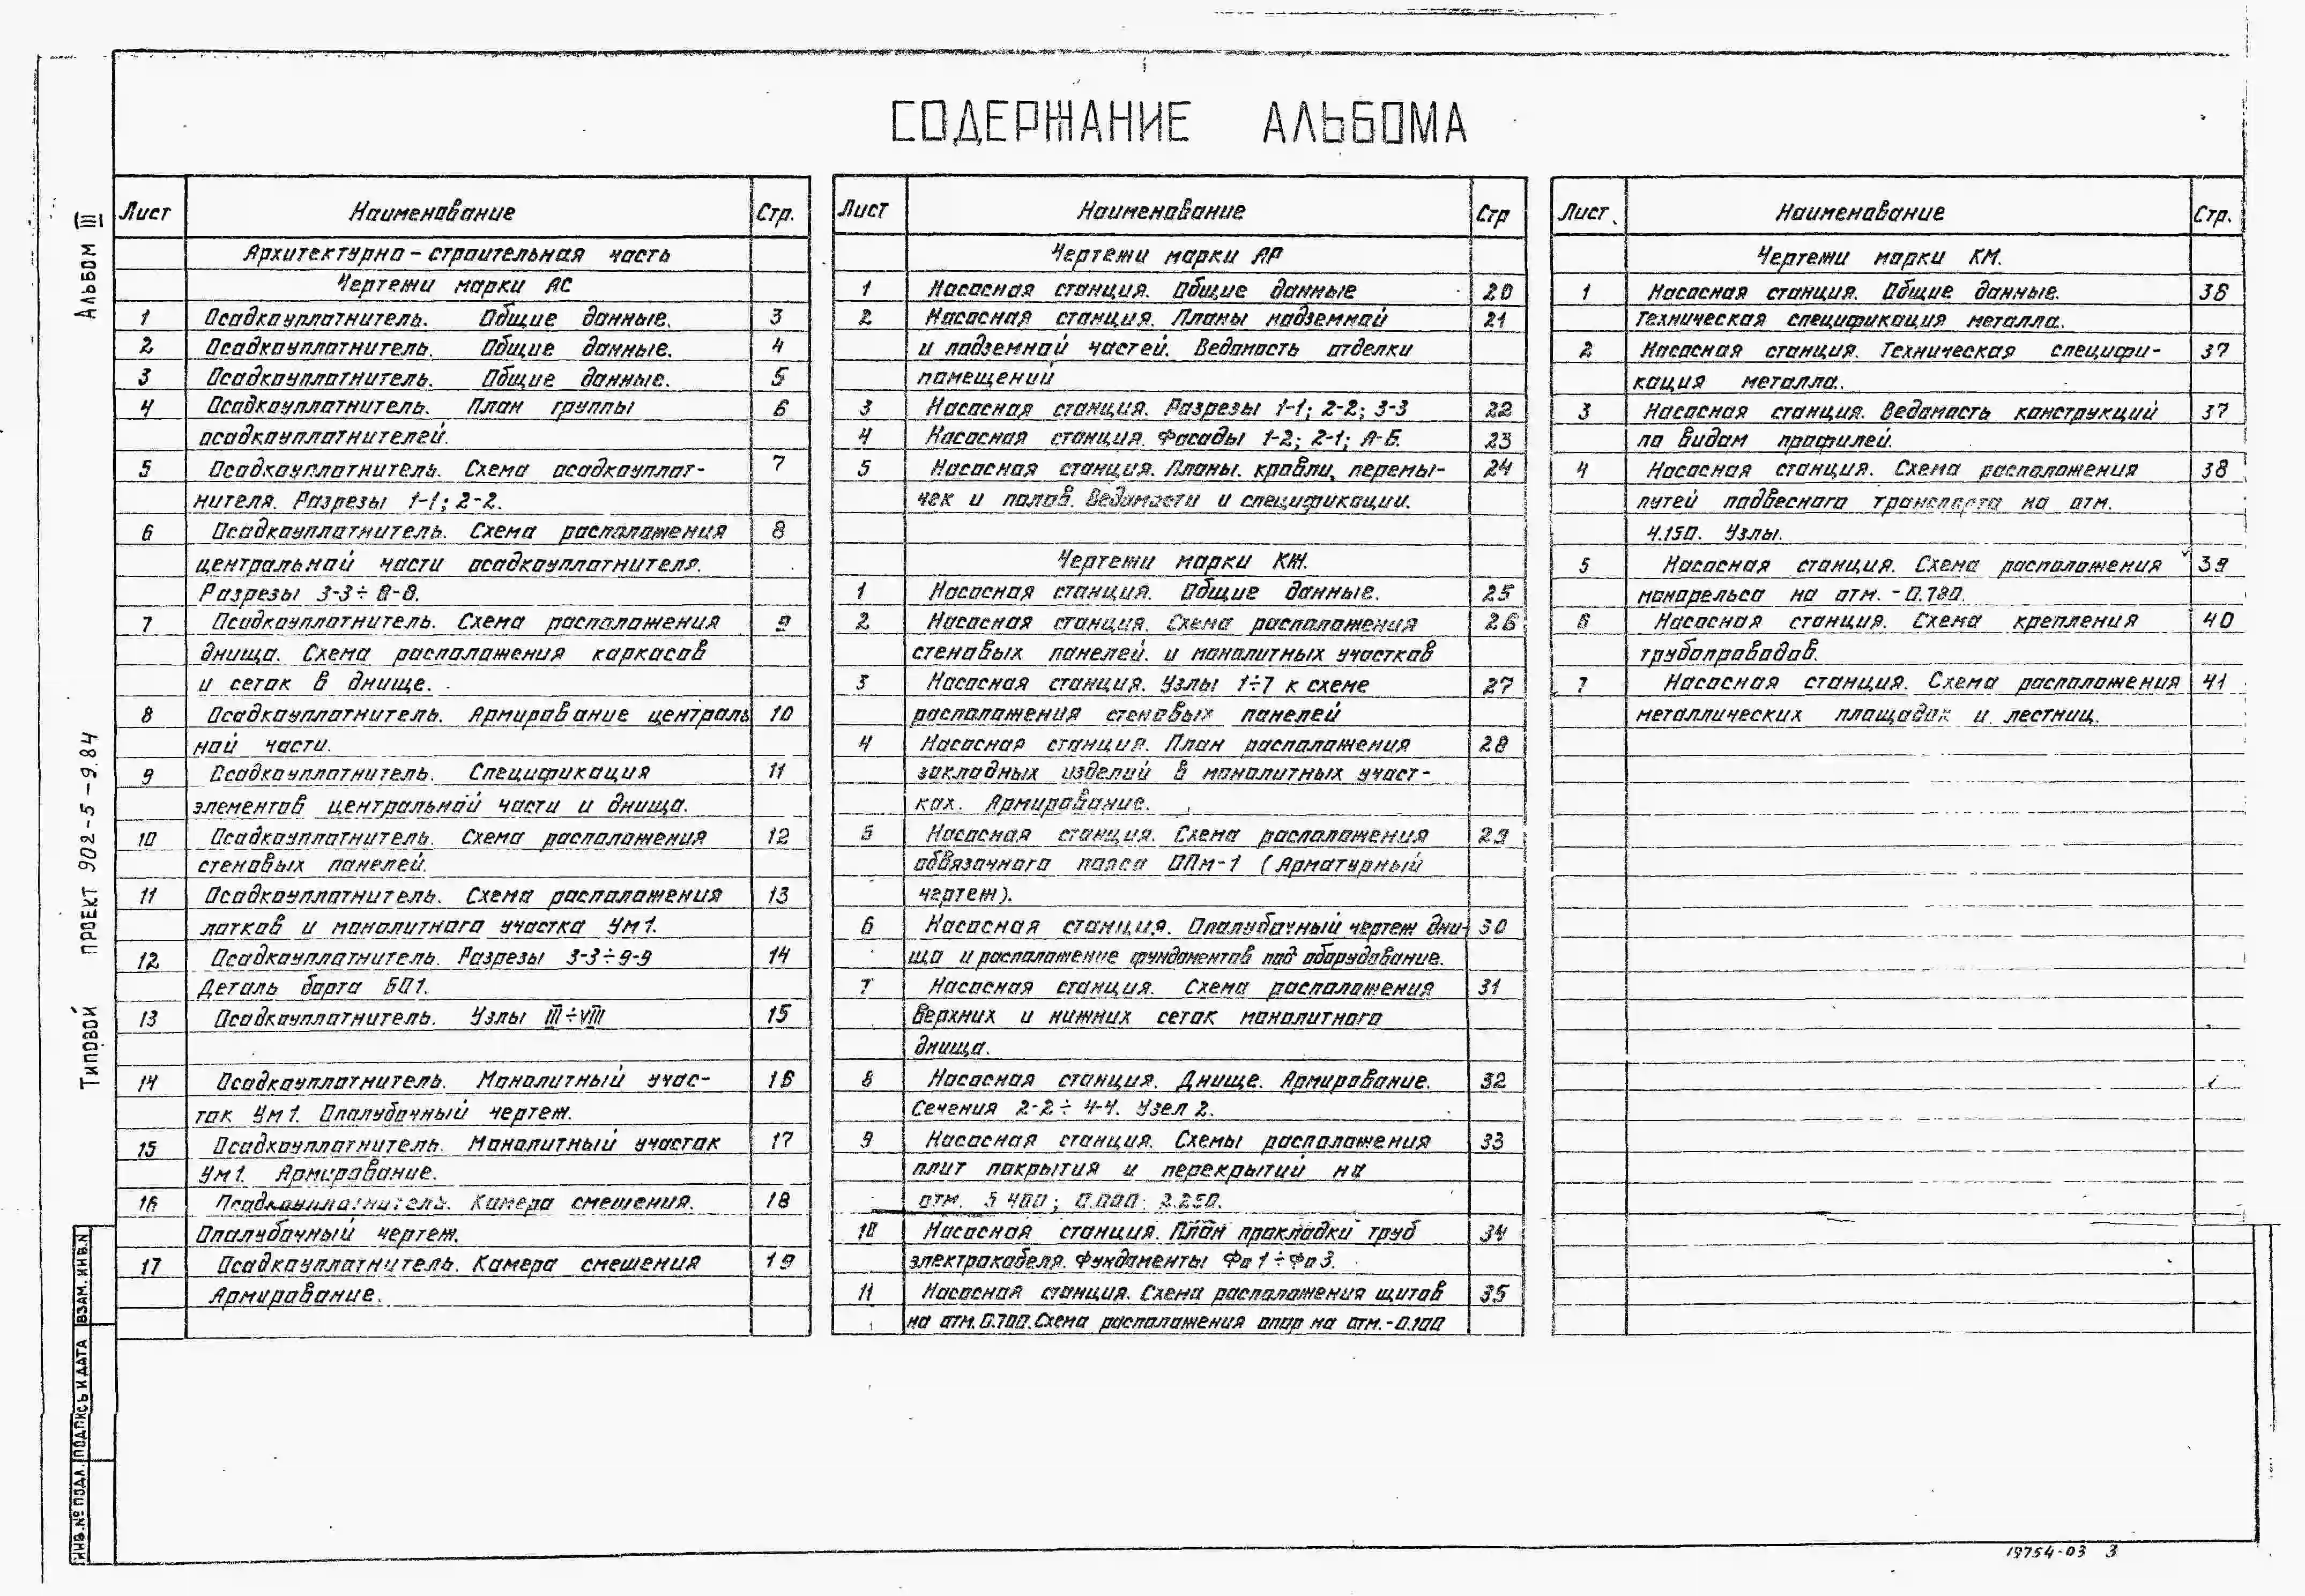 СОДЕРЖАНИЕ АЛЬБОМА
Лист Наименование Стр.
Архитектурно-строительная часть
Чертежи марки АС
1 Осадкоуплотнитель. Общие данные. 3
2 Осадкоуплотнитель. Общие данные. 4
3 Осадкоуплотнитель. Общие данные. 5
4 Осадкоуплотнитель. План группы 6
осадкоуплотнителей.
5 Осадкоуплотнитель. Схема осадкоуплот- 7
нителя. Разрезы 1-1; 2-2.
6 Осадкоуплотнитель. Схема расположения 8
центральной части осадкоуплотнителя.
Разрезы 3-3÷8-8.
7 Осадкоуплотнитель. Схема расположения 9
днища. Схема расположения каркасов
и сеток в днище.
8 Осадкоуплотнитель. Армирование централь 10
ной части.
9 Осадкоуплотнитель. Спецификация 11
элементов центральной части и днища.
10 Осадкоуплотнитель. Схема расположения 12
стеновых панелей.
11 Осадкоуплотнитель. Схема расположения 13
лотков и монолитного участка Ум1.
12 Осадкоуплотнитель. Разрезы 3-3÷9-9 14
Деталь борта БО1.
13 Осадкоуплотнитель. Узлы III÷VIII 15
14 Осадкоуплотнитель. Монолитный учас- 16
ток Ум1. Опалубочный чертеж.
15 Осадкоуплотнитель. Монолитный участок 17
Ум1. Армирование.
16 Осадкоуплотнитель. Камера смешения. 18
Опалубочный чертеж.
17 Осадкоуплотнитель. Камера смешения 19
Армирование.
Лист Наименование Стр
Чертежи марки АР
1 Насосная станция. Общие данные 20
2 Насосная станция. Планы надземной 21
и подземной частей. Ведомость отделки
помещений
3 Насосная станция. Разрезы 1-1; 2-2; 3-3 22
4 Насосная станция. Фасады 1-2; 2-1; А-Б. 23
5 Насосная станция. Планы. кровли, перемы- 24
чек и полов. Ведомости и спецификации.
Чертежи марки КЖ.
1 Насосная станция. Общие данные. 25
2 Насосная станция. Схема расположения 26
стеновых панелей. и монолитных участков
3 Насосная станция. Узлы 1÷7 к схеме 27
расположения стеновых панелей
4 Насосная станция. План расположения 28
закладных изделий в монолитных участ-
ках. Армирование.
5 Насосная станция. Схема расположения 29
обвязочного пояса ОПм-1 (Арматурный
чертеж).
6 Насосная станция. Опалубочный чертеж дни- 30
ща и расположение фундаментов под оборудование.
7 Насосная станция. Схема расположения 31
верхних и нижних сеток монолитного
днища.
8 Насосная станция. Днище. Армирование. 32
Сечения 2-2÷4-4. Узел 2.
9 Насосная станция. Схемы расположения 33
плит покрытия и перекрытий на
отм. 5 400; 0.000; 2.250.
10 Насосная станция. План прокладки труб 34
электрокабеля. Фундаменты Фо1÷Фо3.
11 Насосная станция. Схема расположения щитов 35
на отм. 0.700. Схема расположения опор на отм.-0.100
Лист. Наименование Стр.
Чертежи марки КМ.
1 Насосная станция. Общие данные. 36
Техническая спецификация металла.
2 Насосная станция. Техническая специфи- 37
кация металла.
3 Насосная станция. Ведомость конструкций 37
по видам профилей.
4 Насосная станция. Схема расположения 38
путей подвесного транспорта на отм.
4.150. Узлы.
5 Насосная станция. Схема расположения 39
монорельса на отм. -0.780.
6 Насосная станция. Схема крепления 40
трубопроводов.
7 Насосная станция. Схема расположения 41
металлических площадок и лестниц.
АЛЬБОМ III
ТИПОВОЙ ПРОЕКТ 902-5-9.84
ИНВ.№ ПОДЛ. ПОДПИСЬ И ДАТА ВЗАМ. ИНВ.N
19754-03 3